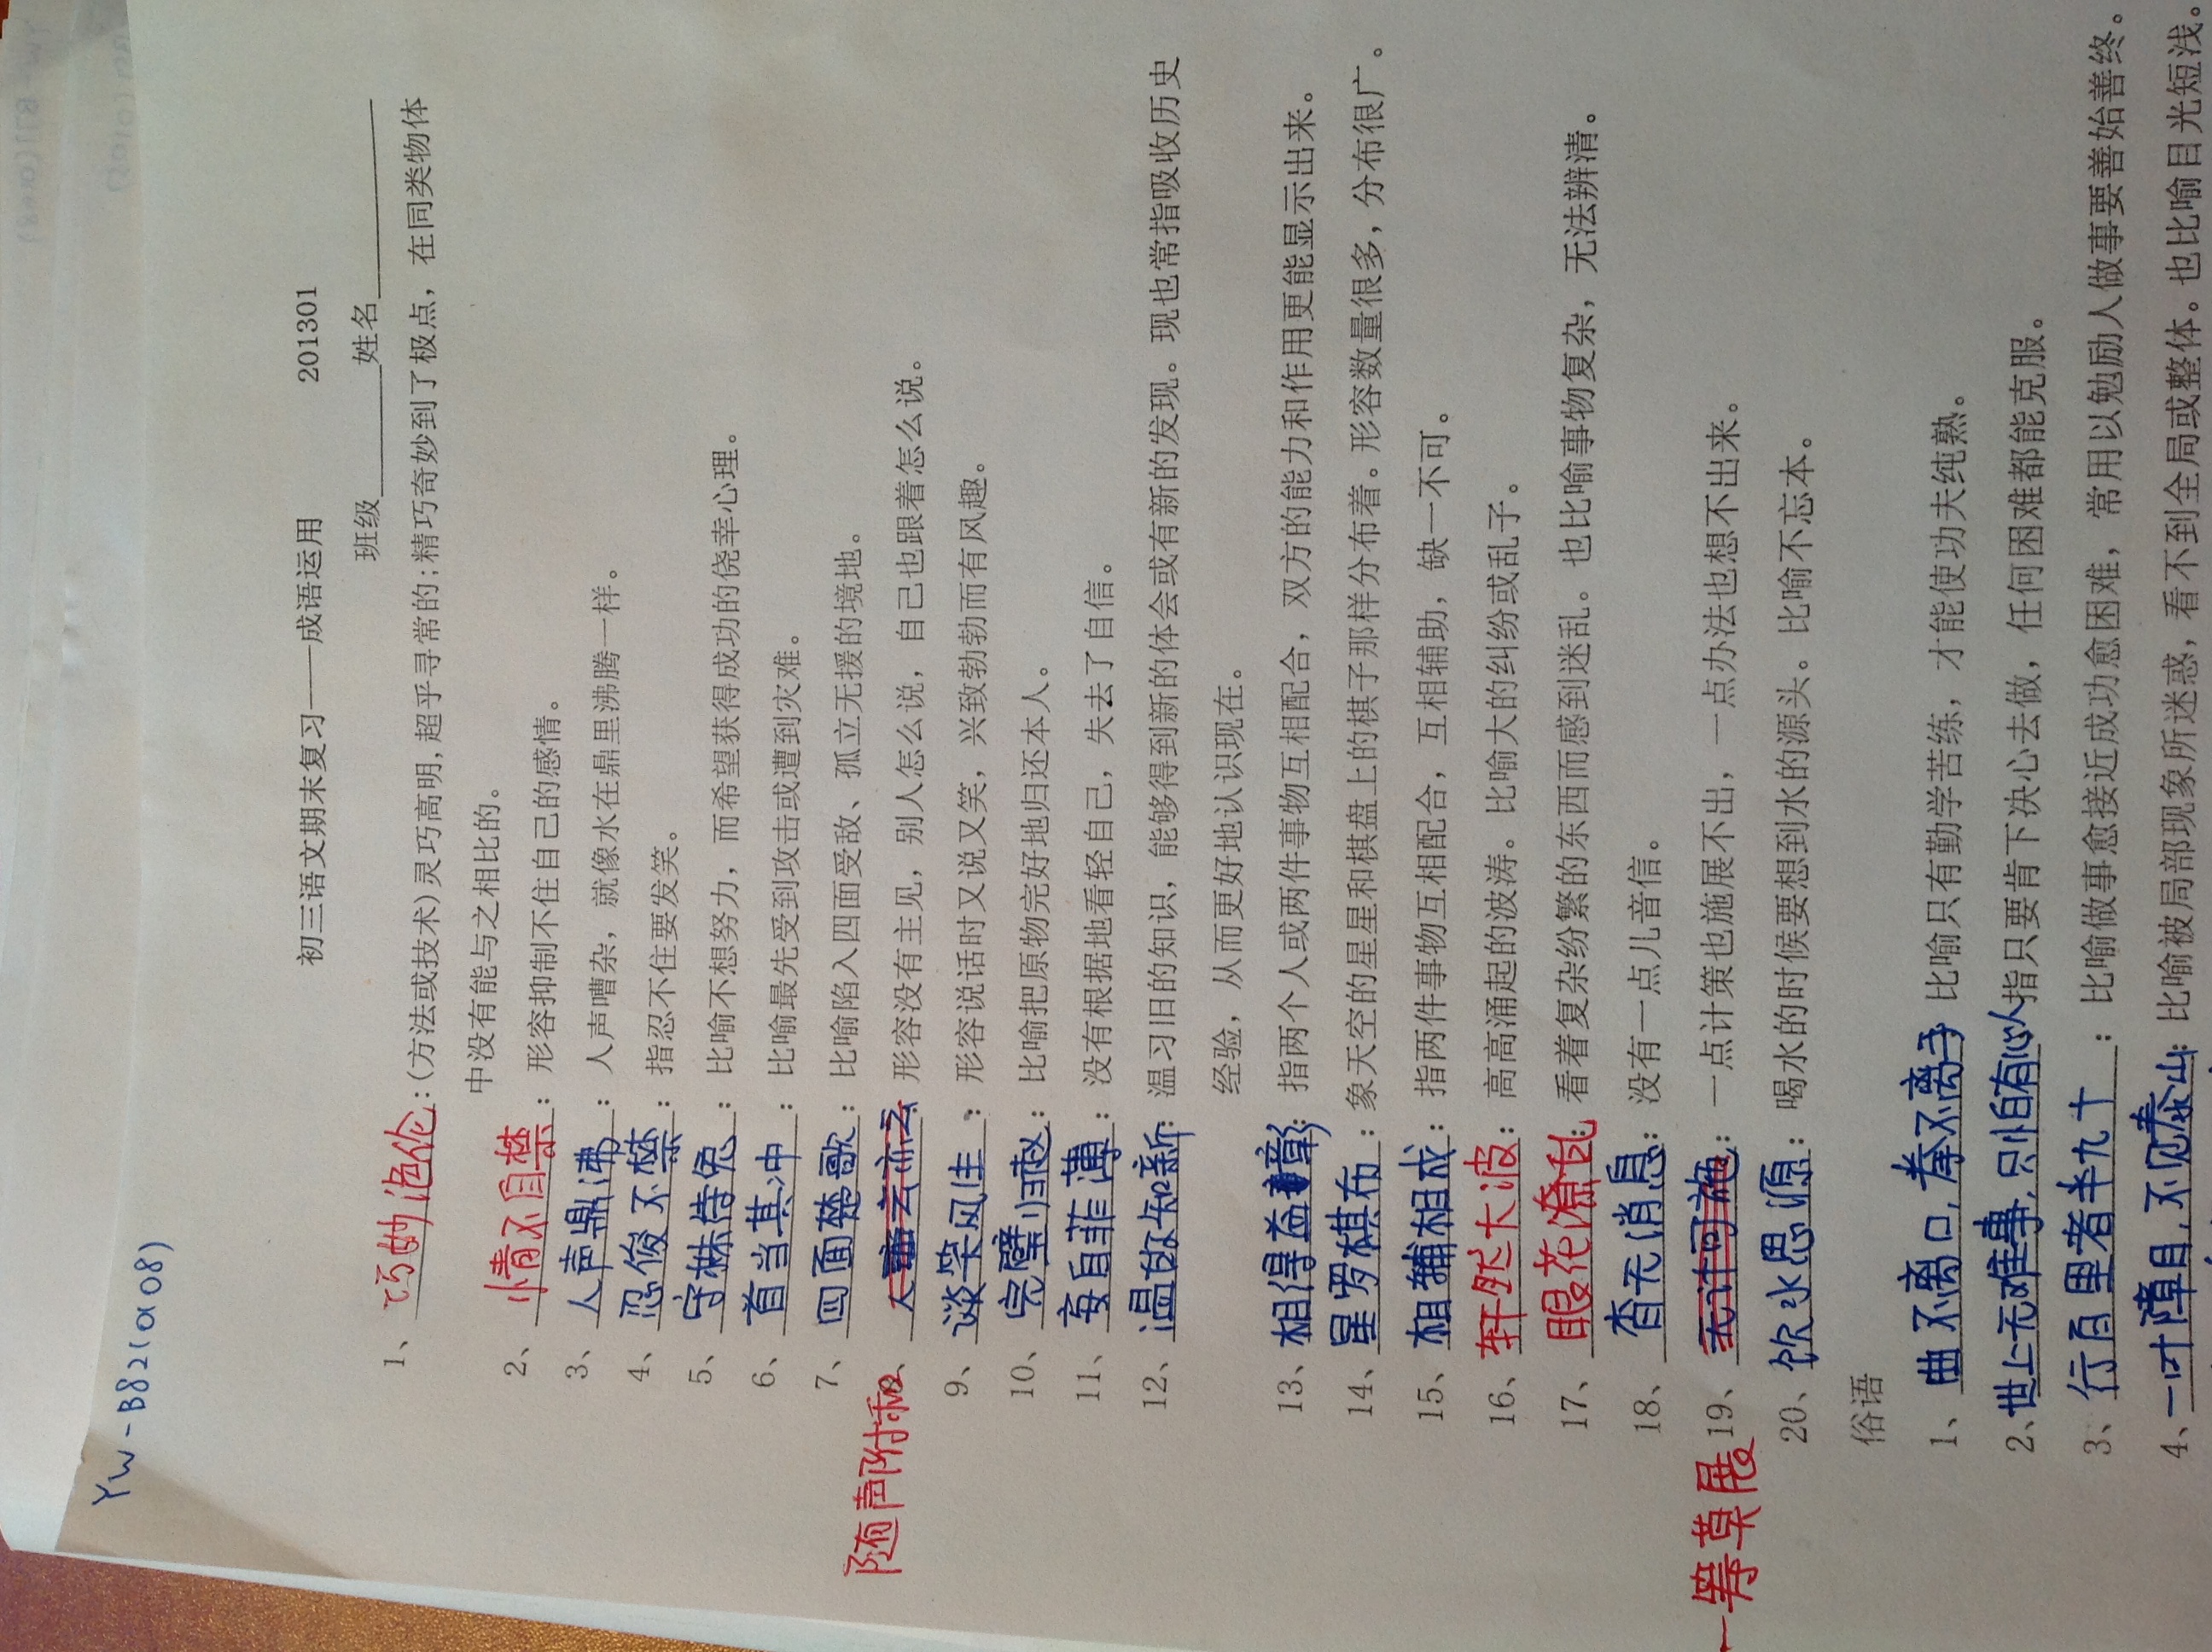 YW-B82(0108)
初三语文期末复习——成语运用 201301
班级________姓名____________
1、巧妙绝伦:(方法或技术)灵巧高明,超乎寻常的;精巧奇妙到了极点，在同类物体
中没有能与之相比的。
2、情不自禁：形容抑制不住自己的感情。
3、人声鼎沸：人声嘈杂，就像水在鼎里沸腾一样。
4、忍俊不禁：指忍不住要发笑。
5、守株待兔：比喻不想努力，而希望获得成功的侥幸心理。
6、首当其冲：比喻最先受到攻击或遭到灾难。
7、四面楚歌：比喻陷入四面受敌、孤立无援的境地。
随声附和 、人云亦云 形容没有主见，别人怎么说，自己也跟着怎么说。
9、谈笑风生：形容说话时又说又笑，兴致勃勃而有风趣。
10、完璧归赵：比喻把原物完好地归还本人。
11、妄自菲薄：没有根据地看轻自己，失去了自信。
12、温故知新：温习旧的知识，能够得到新的体会或有新的发现。现也常指吸收历史
经验，从而更好地认识现在。
13、相得益彰：指两个人或两件事物互相配合，双方的能力和作用更能显示出来。
14、星罗棋布：象天空的星星和棋盘上的棋子那样分布着。形容数量很多，分布很广。
15、相辅相成：指两件事物互相配合，互相辅助，缺一不可。
16、轩然大波：高高涌起的波涛。比喻大的纠纷或乱子。
17、眼花潦乱：看着复杂纷繁的东西而感到迷乱。也比喻事物复杂，无法辨清。
18、杳无消息：没有一点儿音信。
一筹莫展 19、无计可施：一点计策也施展不出，一点办法也想不出来。
20、饮水思源：喝水的时候要想到水的源头。比喻不忘本。
俗语
1、曲不离口，拳不离手 比喻只有勤学苦练，才能使功夫纯熟。
2、世上无难事，只怕有心人 指只要肯下决心去做，任何困难都能克服。
3、行百里者半九十：比喻做事愈接近成功愈困难，常用以勉励人做事要善始善终。
4、一叶障目，不见泰山：比喻被局部现象所迷惑，看不到全局或整体。也比喻目光短浅。